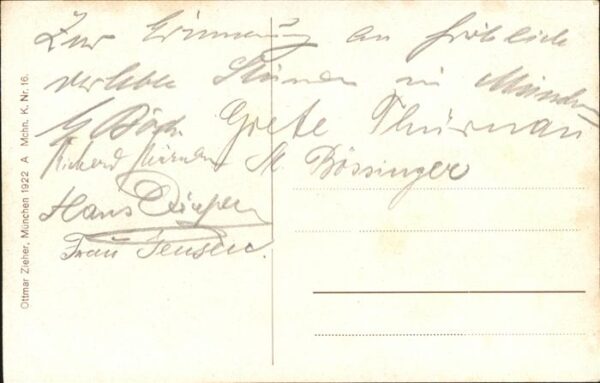 Zur Erinnerung an fröhlich
verlebte Stunden in München
Grete Thürnau
Richard Thürnau M. Bössinger
Hans
Frau Jensen.
Ottmar Zieher, München 1922 A Mchn. K. Nr. 16.